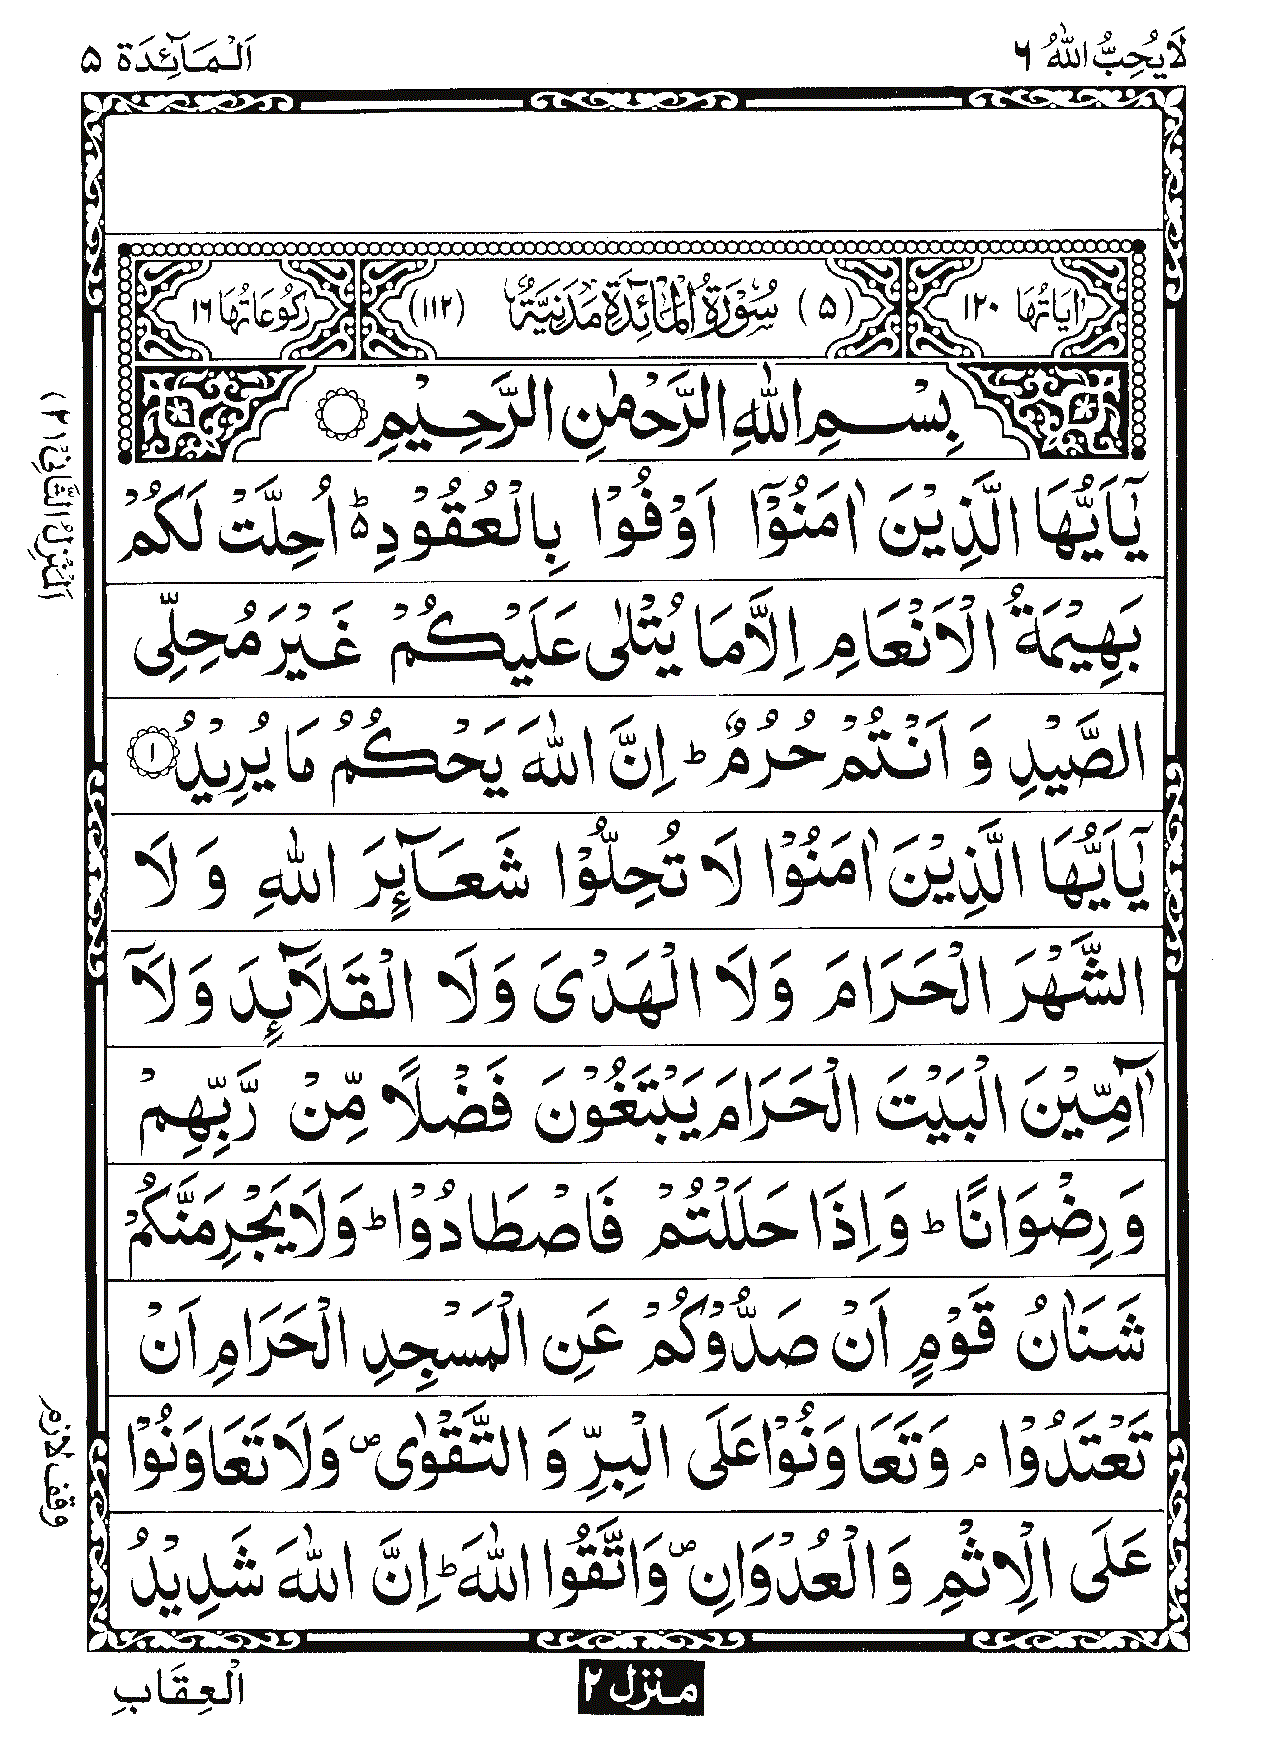 لَا يُحِبُّ اللهُ ٦
اَلْمَآئِدَة ٥
اٰيَاتُهَا ١٢٠
(٥) سُوْرَةُ الْمَائِدَةِ مَدَنِيَّةٌ (١١٢)
رُكُوْعَاتُهَا ١٦
بِسْمِ اللهِ الرَّحْمٰنِ الرَّحِيْمِ
يٰٓاَيُّهَا الَّذِيْنَ اٰمَنُوْٓا اَوْفُوْا بِالْعُقُوْدِ ؕ۬ اُحِلَّتْ لَكُمْ
بَهِيْمَةُ الْاَنْعَامِ اِلَّا مَا يُتْلٰى عَلَيْكُمْ غَيْرَ مُحِلِّى
الصَّيْدِ وَ اَنْتُمْ حُرُمٌ ؕ اِنَّ اللهَ يَحْكُمُ مَا يُرِيْدُ ١
يٰٓاَيُّهَا الَّذِيْنَ اٰمَنُوْا لَا تُحِلُّوْا شَعَآئِرَ اللهِ وَ لَا
الشَّهْرَ الْحَرَامَ وَلَا الْهَدْىَ وَلَا الْقَلَآئِدَ وَلَآ
آٰمِّيْنَ الْبَيْتَ الْحَرَامَ يَبْتَغُوْنَ فَضْلًا مِّنْ رَّبِّهِمْ
وَ رِضْوَانًا ؕ وَ اِذَا حَلَلْتُمْ فَاصْطَادُوْا ؕ وَلَا يَجْرِمَنَّكُمْ
شَنَاٰنُ قَوْمٍ اَنْ صَدُّوْكُمْ عَنِ الْمَسْجِدِ الْحَرَامِ اَنْ
تَعْتَدُوْا ۘ وَتَعَاوَنُوْا عَلَى الْبِرِّ وَ التَّقْوٰى ۪ وَلَا تَعَاوَنُوْا
عَلَى الْاِثْمِ وَ الْعُدْوَانِ ۪ وَاتَّقُوا اللهَ ؕ اِنَّ اللهَ شَدِيْدُ
الْعِقَابِ
منزل ٢
اَلْمَنْزِلُ الثَّانِىْ (٢)
وقف لازم